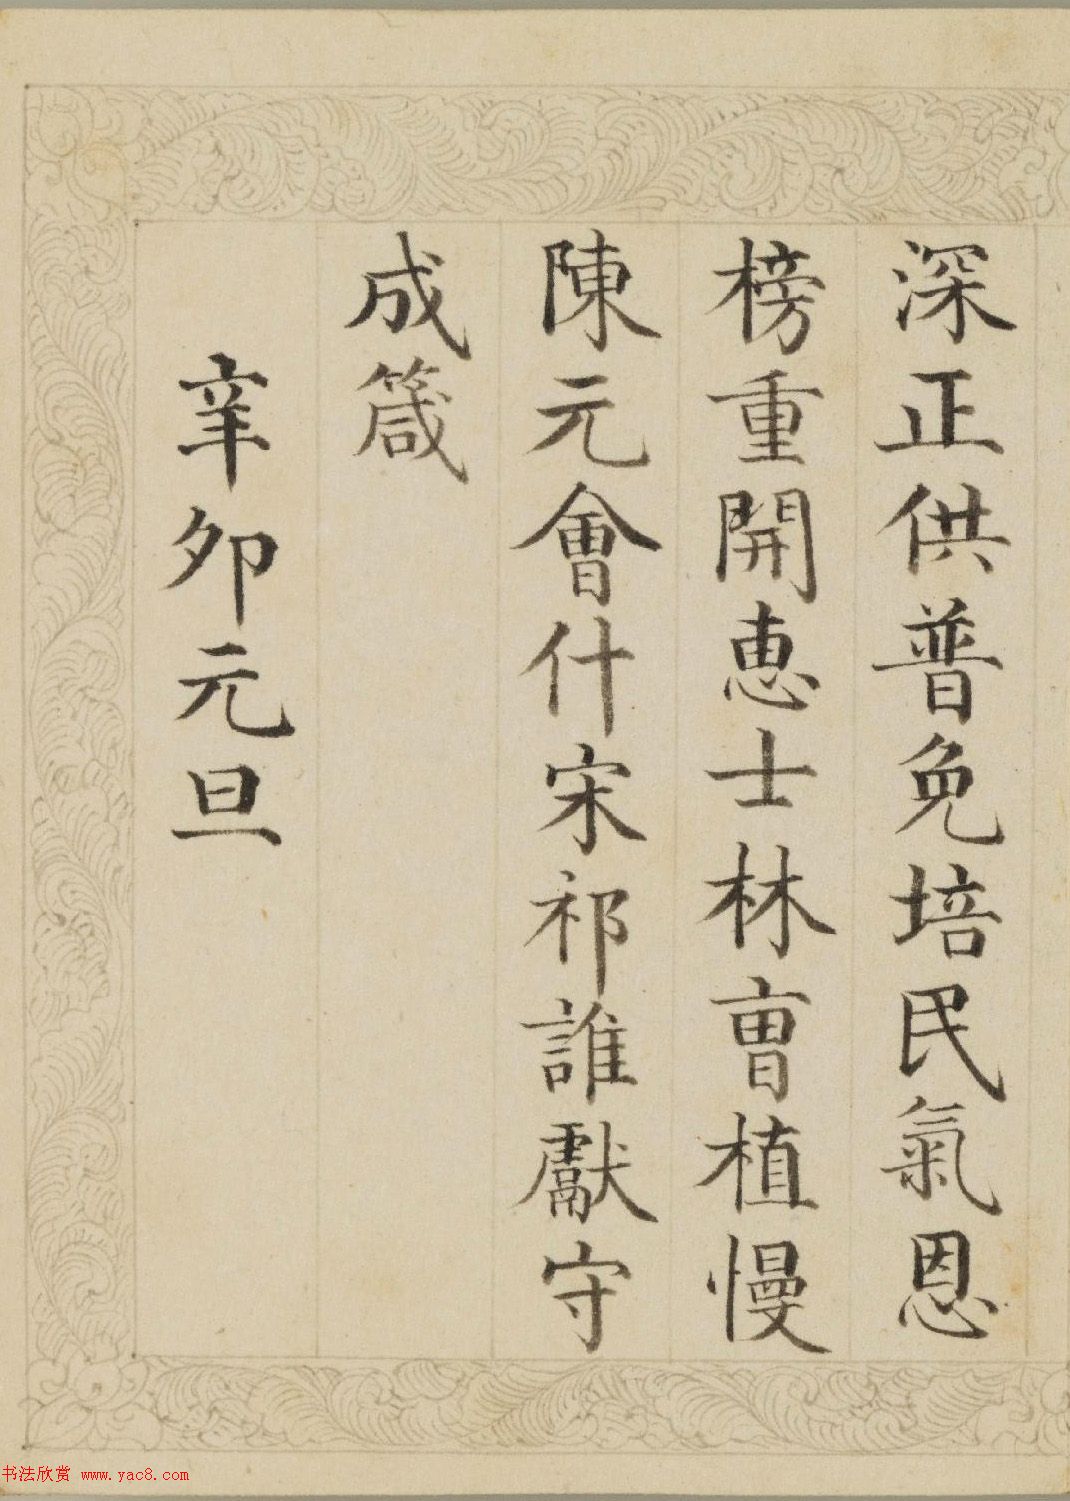 深正供普免培民氣恩
榜重開惠士林曺植慢
陳元會什宋祁誰獻守
成箴
辛卯元旦
书法欣赏 www.yac8.com